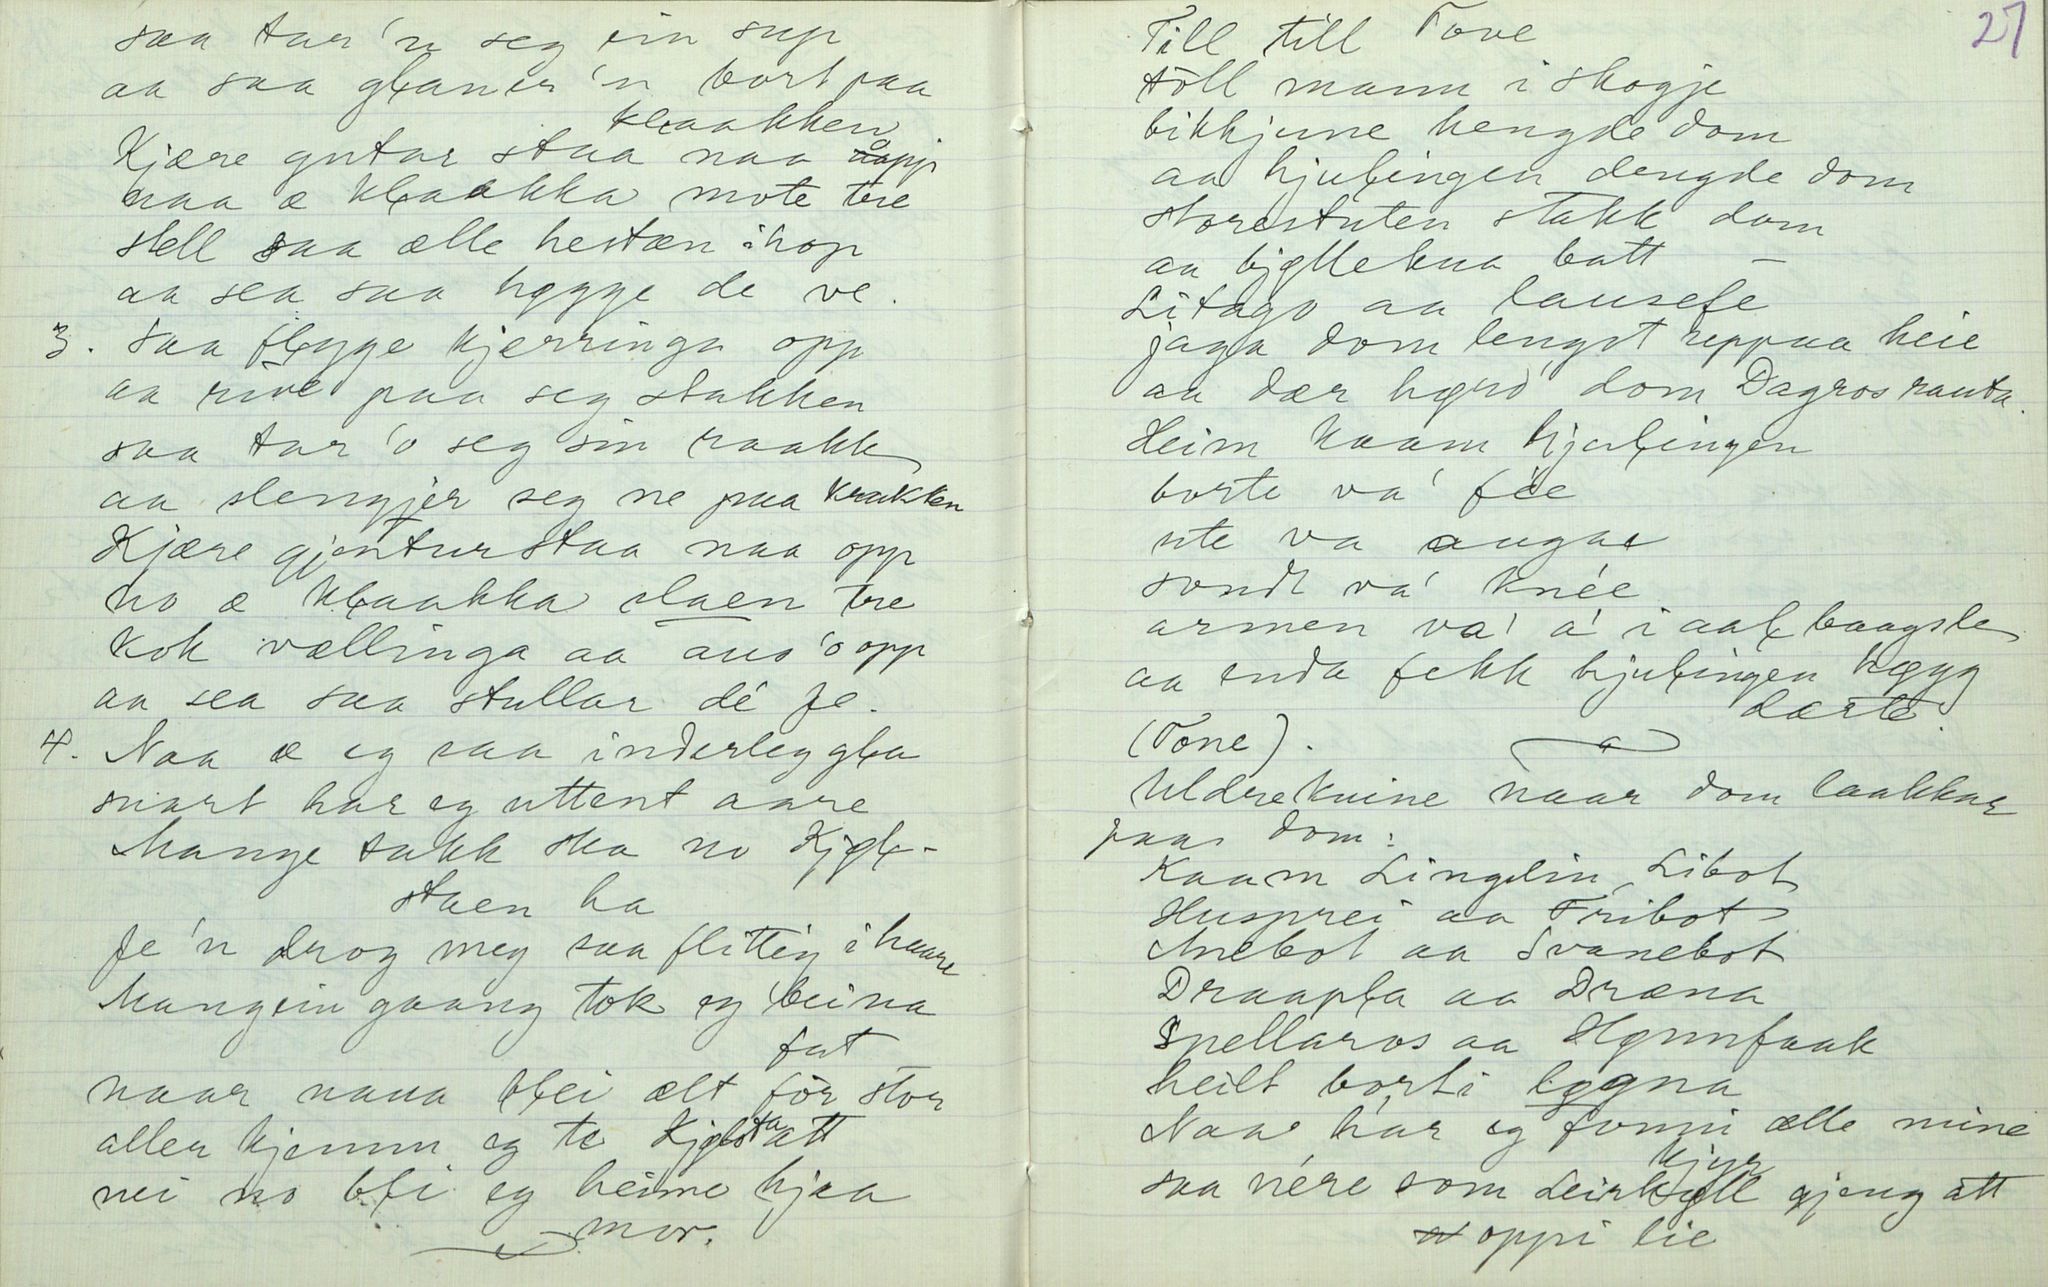 saa tar'n seg ein sup
aa saa glaner'n bort paa
klaakken
Kjære gutar staa naa opp
naa æ klaakka mote tre
stell saa ælle hestæn ihop
aa sea saa høgge de ve.
3. Saa fløge kjerringa opp
aa rive paa seg stakken
saa tar'o seg sin raakk
aa slengjer seg ne paa krakken
Kjære gjentur staa naa opp
no æ klaakka slaen tre
kok vællinga aa aus'o opp
aa sea saa stullar dé fe.
4. Naa æ eg saa inderleg gla
snart har eg uttent aare
Mange takk ska no Kjøl-
staen ha
fe'n drog meg saa flittig i haare
Mangein gaang tok eg beina
fat
naar naua blei ælt för stor
aller kjemm eg te Kjølstaatt
nei no bli eg heime hjaa
mor.
27
Till till Tove
töll mann i skogje
bikkjune hengde dom
aa hjulingen dengde dom
storestuten stakk dom
aa bjøllekua batt –
Litago aa lausefe
jaga dom lengst uppaa heie
aa dær hørd' dom Dagros rauta.
Heim kaam hjulingen
borte va' fée
ute va augae
sondt va' knée
armen va' á' i aalbaagste
aa enda fekk hjulingen høgg
dærte
(Tone).
Uldrekuine naar dom laakkar
paa dom:
Kaam Lingelin, Libot
Husprei aa Fribot
Anebot aa Svanebot
Draapla aa Dræna
Spellaros aa Hønnfaak
heilt borti løgna
Naa har eg funni ælle mine
kjyr
saa nére som Leirkøll gjeng att
oppi lie